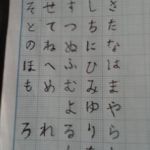 さたなはまやら
しちにひみゆり
すつぬふむよる
せてねへめれ
そとのほもろ